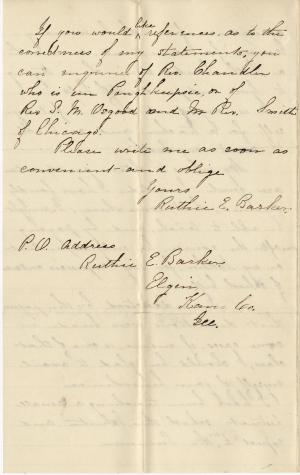 If you would like references as to the
correctness of my statements, you
can inquire of Rev. Chandler
who is in Poughkeepsie, or of
Rev S. M. Osgood and Rev. Smith
of Chicago.
Please write me as soon as
convenient and oblige
Yours
Ruthie E. Barker.
P. O. Address
Ruthie E. Barker
Elgin
Kane Co.
Ill.